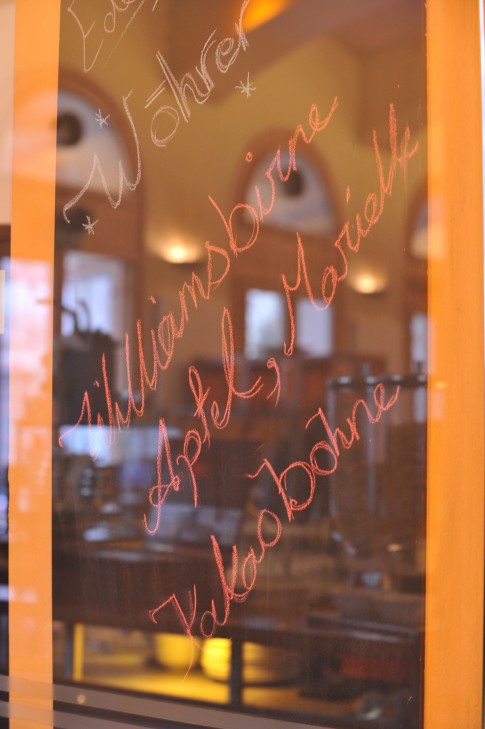 Wöhrer
Williamsbirne
Apfel, Marielle
Kakaobohne